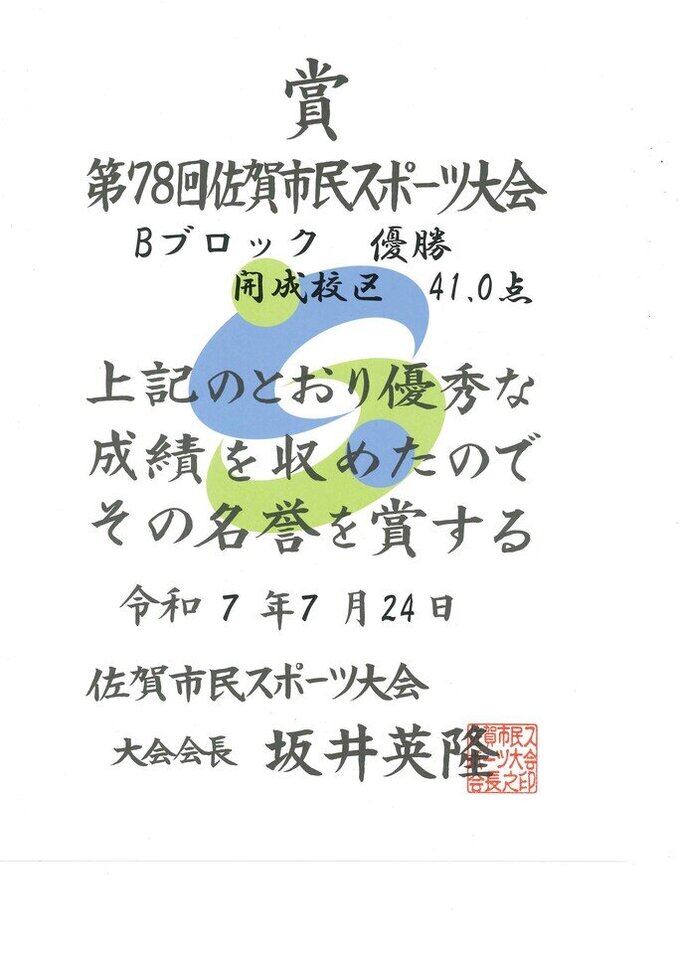 賞
第78回佐賀市民スポーツ大会
Bブロック 優勝
開成校区 41.0点
上記のとおり優秀な
成績を収めたので
その名誉を賞する
令和 7 年 7 月 24 日
佐賀市民スポーツ大会
大会会長 坂井英隆
佐賀市民ス
ポーツ大会
会長之印